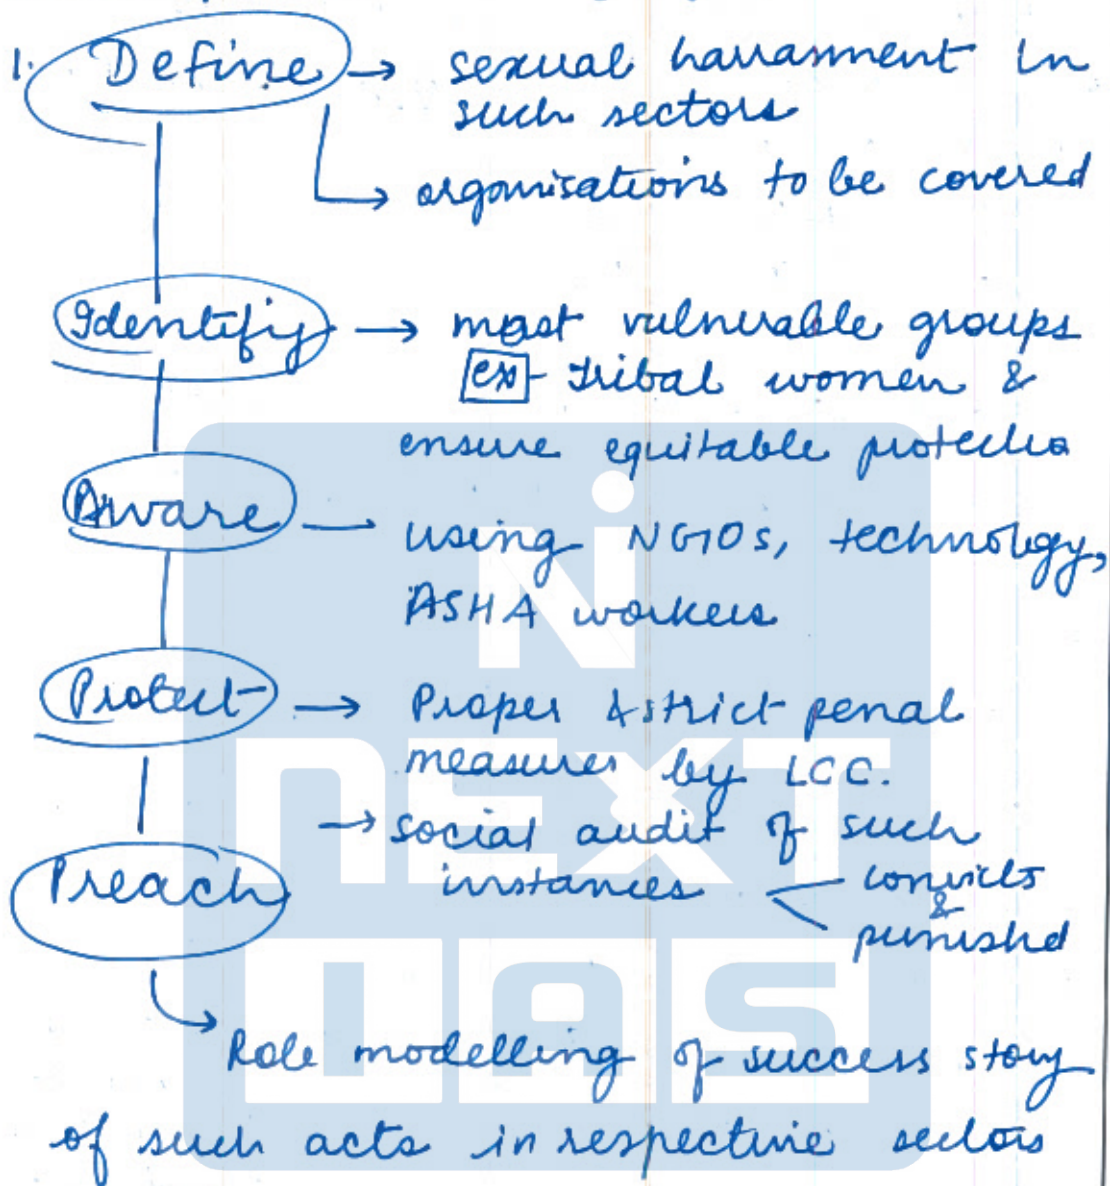 1. Define → sexual harrasment in
such sectors
→ organisations to be covered
Identify → most vulnerable groups
ex - tribal women &
ensure equitable protectio
Aware — using NGOs, technology,
ASHA workers
Protect → Proper & strict penal
measures by LCC.
→ social audit of such
instances
convicts
&
punished
Preach
Role modelling of success story
of such acts in respective sectors
Ni
NEXT
IAS